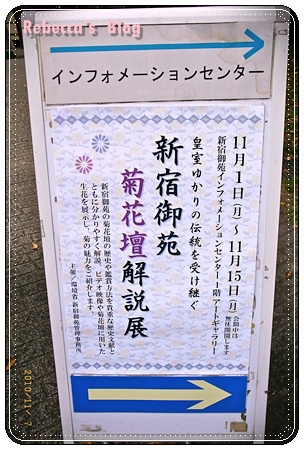 Rebecca's Blog
インフォメーションセンター
11月1日(月)～11月15日(月)
会期中は
無休開園します
新宿御苑インフォメーションセンター1階アートギャラリー
皇室ゆかりの伝統を受け継ぐ
新宿御苑
菊花壇解説展
新宿御苑の菊花壇の歴史や鑑賞方法を貴重な歴史文献と
ともに分かりやすく解説。ビデオ映像や菊花壇に用いた
生花を展示し、菊の魅力をご紹介します。
主催／環境省 新宿御苑管理事務所
2010/11/ 7